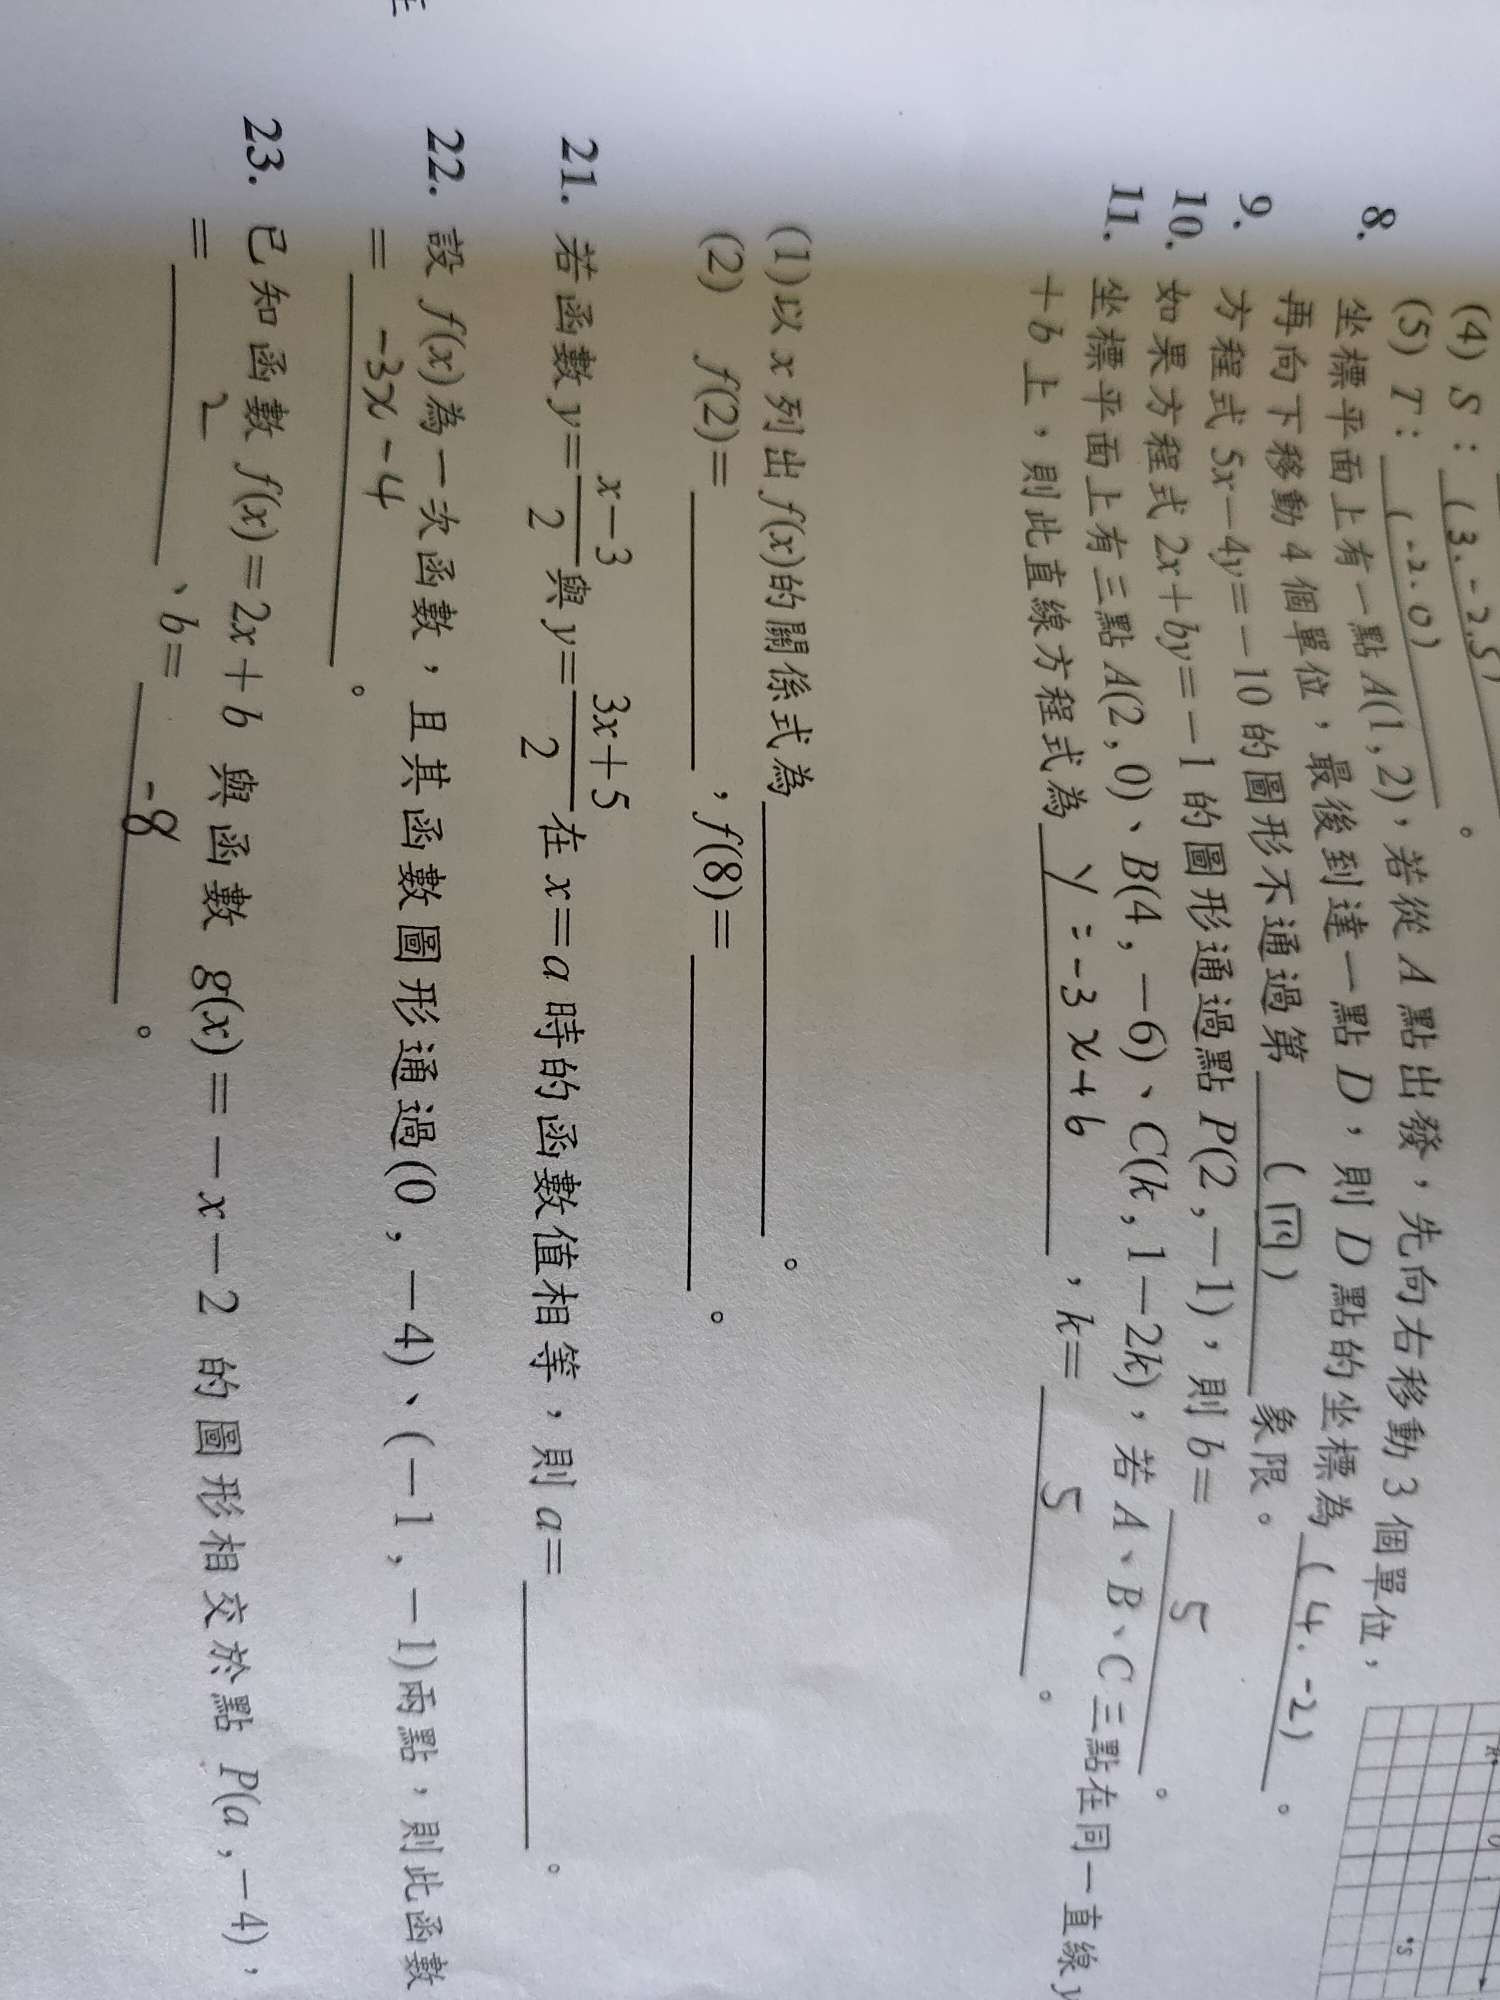 (4) S：(3.-2.5)
(5) T：(-2.0)。
8. 坐標平面上有一點 A(1，2)，若從 A 點出發，先向右移動 3 個單位，
再向下移動 4 個單位，最後到達一點 D，則 D 點的坐標為 (4.-2)。
9. 方程式 5x－4y＝－10 的圖形不通過第 (四) 象限。
10. 如果方程式 2x＋by＝－1 的圖形通過點 P(2，－1)，則 b＝ 5 。
11. 坐標平面上有三點 A(2，0)、B(4，－6)、C(k，1－2k)，若 A、B、C 三點在同一直線 y
＋b 上，則此直線方程式為 y=-3x+6 ，k＝ 5 。
(1)以 x 列出 f(x)的關係式為 。
(2) f(2)＝ ，f(8)＝ 。
21. 若函數 y＝x－3/2 與 y＝3x＋5/2 在 x＝a 時的函數值相等，則 a＝ 。
22. 設 f(x)為一次函數，且其函數圖形通過(0，－4)、(－1，－1)兩點，則此函數
＝ -3x-4 。
23. 已知函數 f(x)＝2x＋b 與函數 g(x)＝－x－2 的圖形相交於點 P(a，－4)，
＝ 2 、b＝ -8 。
S